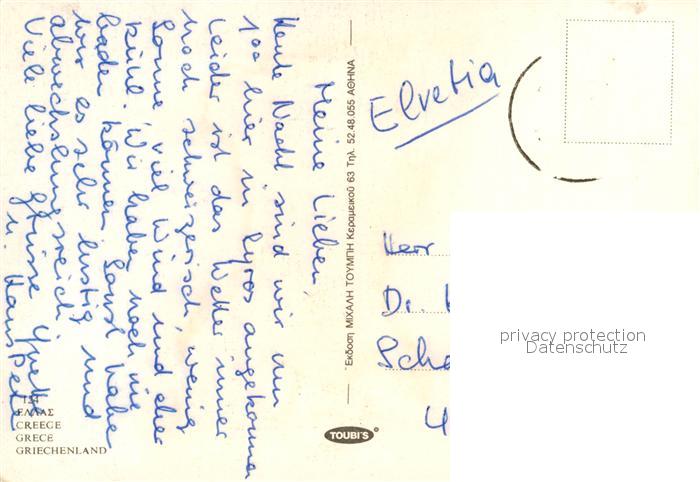 Meine Lieben,
Heute Nacht sind wir um
1⁰⁰ hier in Syros angekommen
Leider ist das Wetter immer
noch schweizerisch, wenig
Sonne, viel Wind und eher
kühl. Wir haben noch nie
baden können. Sonst haben
wir es sehr lustig und
abwechslungsreich
Viele liebe Grüsse Yvette
u. Hanspeter
Ἔκδοση ΜΙΧΑΛΗ ΤΟΥΜΠΗ Κεραμεικοῦ 63 Τηλ. 52.48.055 ΑΘΗΝΑ
Elvetia
Herr
Dr.
Scha
4
privacy protection
Datenschutz
TOUBI'S
ΕΛΛΑΣ
CREECE
GRECE
GRIECHENLAND